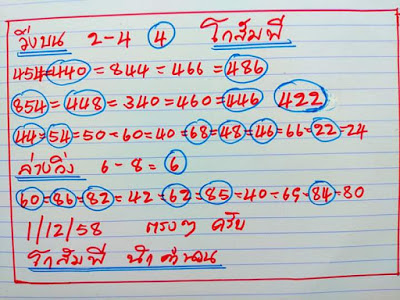 วิ่งบน 2-4 4 โกสัมพี
454-440=844=466=486
854=448=340=460=446 422
44=54=50=60=40=68=48=46=66=22=24
ล่างวิ่ง 6-8=6
60=86=82=42=62=85=40=65=84=80
1/12/58 ตรงๆ ครับ
โกสัมพี นำคำนวน